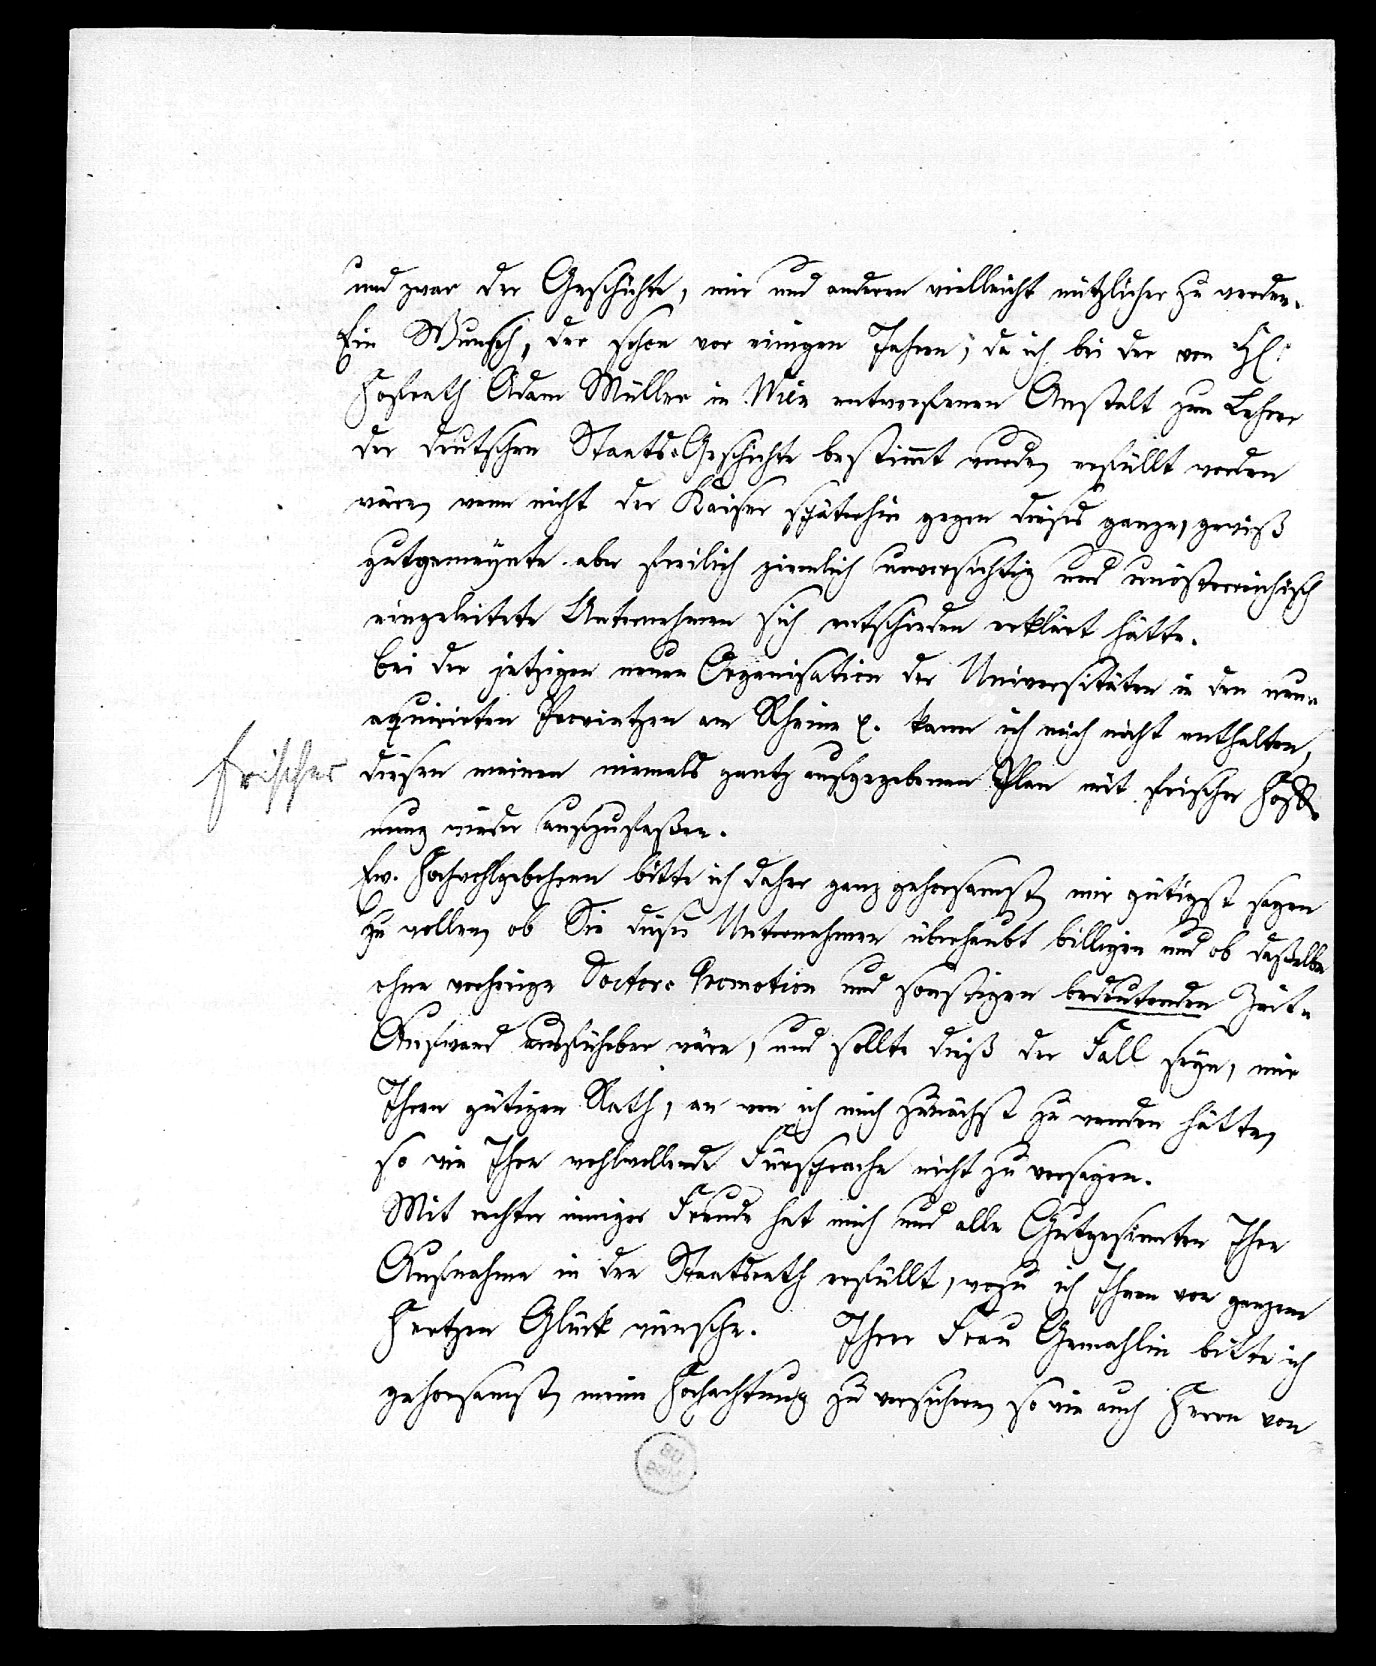 und zwar der Geschichte, mir und anderen vielleicht nützlicher zu werden.
Ein Wunsch, der schon vor einigen Jahren, da ich bei der von H.
Hofrath Adam Müller in Wien entworfenen Anstalt zum Lehrer
der deutschen Staats-Geschichte bestimmt wurde, erfüllt worden
wäre, wenn nicht der Kaiser späterhin gegen dieses ganze, gewiß
gutgemeynte aber freilich ziemlich unvorsichtig und unösterreichisch
eingeleitete Unternehmen sich entschieden erklärt hätte.
Bei der jetzigen neuen Organisation der Universitäten in den neu-
aquirirten Provintzen am Rheine p. kann ich mich nicht enthalten,
frischer
diesen meinen niemals gantz aufgegebenen Plan mit frischer Hoff-
nung wieder aufzufaßen.
Ew. Hochwohlgebohren bitte ich daher ganz gehorsamst, mir gütigst sagen
zu wollen, ob Sie dieses Unternehmen überhaubt billigen und ob daßelbe
ohne vorherige Doctor-Promotion und sonstigen bedeutenden Zeit-
Aufwand ausführbar wäre, und sollte dieß der Fall seyn, mir
Ihren gütigen Rath, an wen ich mich zunächst zu wenden hätte,
so wie Ihre wohlwollende Fürsprache nicht zu versagen.
Mit rechter inniger Freude hat mich und alle Gutgesinnten Ihre
Aufnahme in den Staatsrath erfüllt, wozu ich Ihnen von ganzem
Hertzen Glück wünsche. Ihrer Frau Gemahlin bitte ich
gehorsamst, meine Hochachtung zu versichern, so wie auch Herrn von